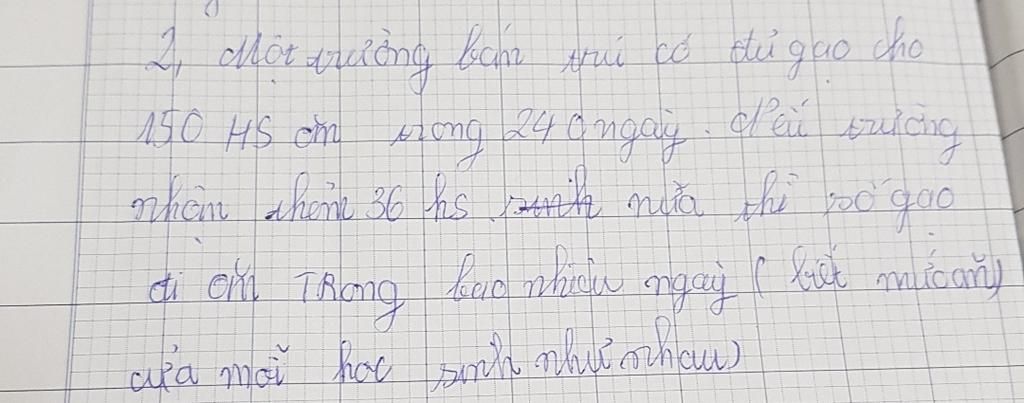 2, Một trường bán trú có đủ gạo cho
150 HS ăn trong 24 ngày. Nếu trường
nhận thêm 36 hs nữa thì số gạo
đi ăn TRong bao nhiêu ngày ( biết mức ăn
của mỗi học sinh như nhau)